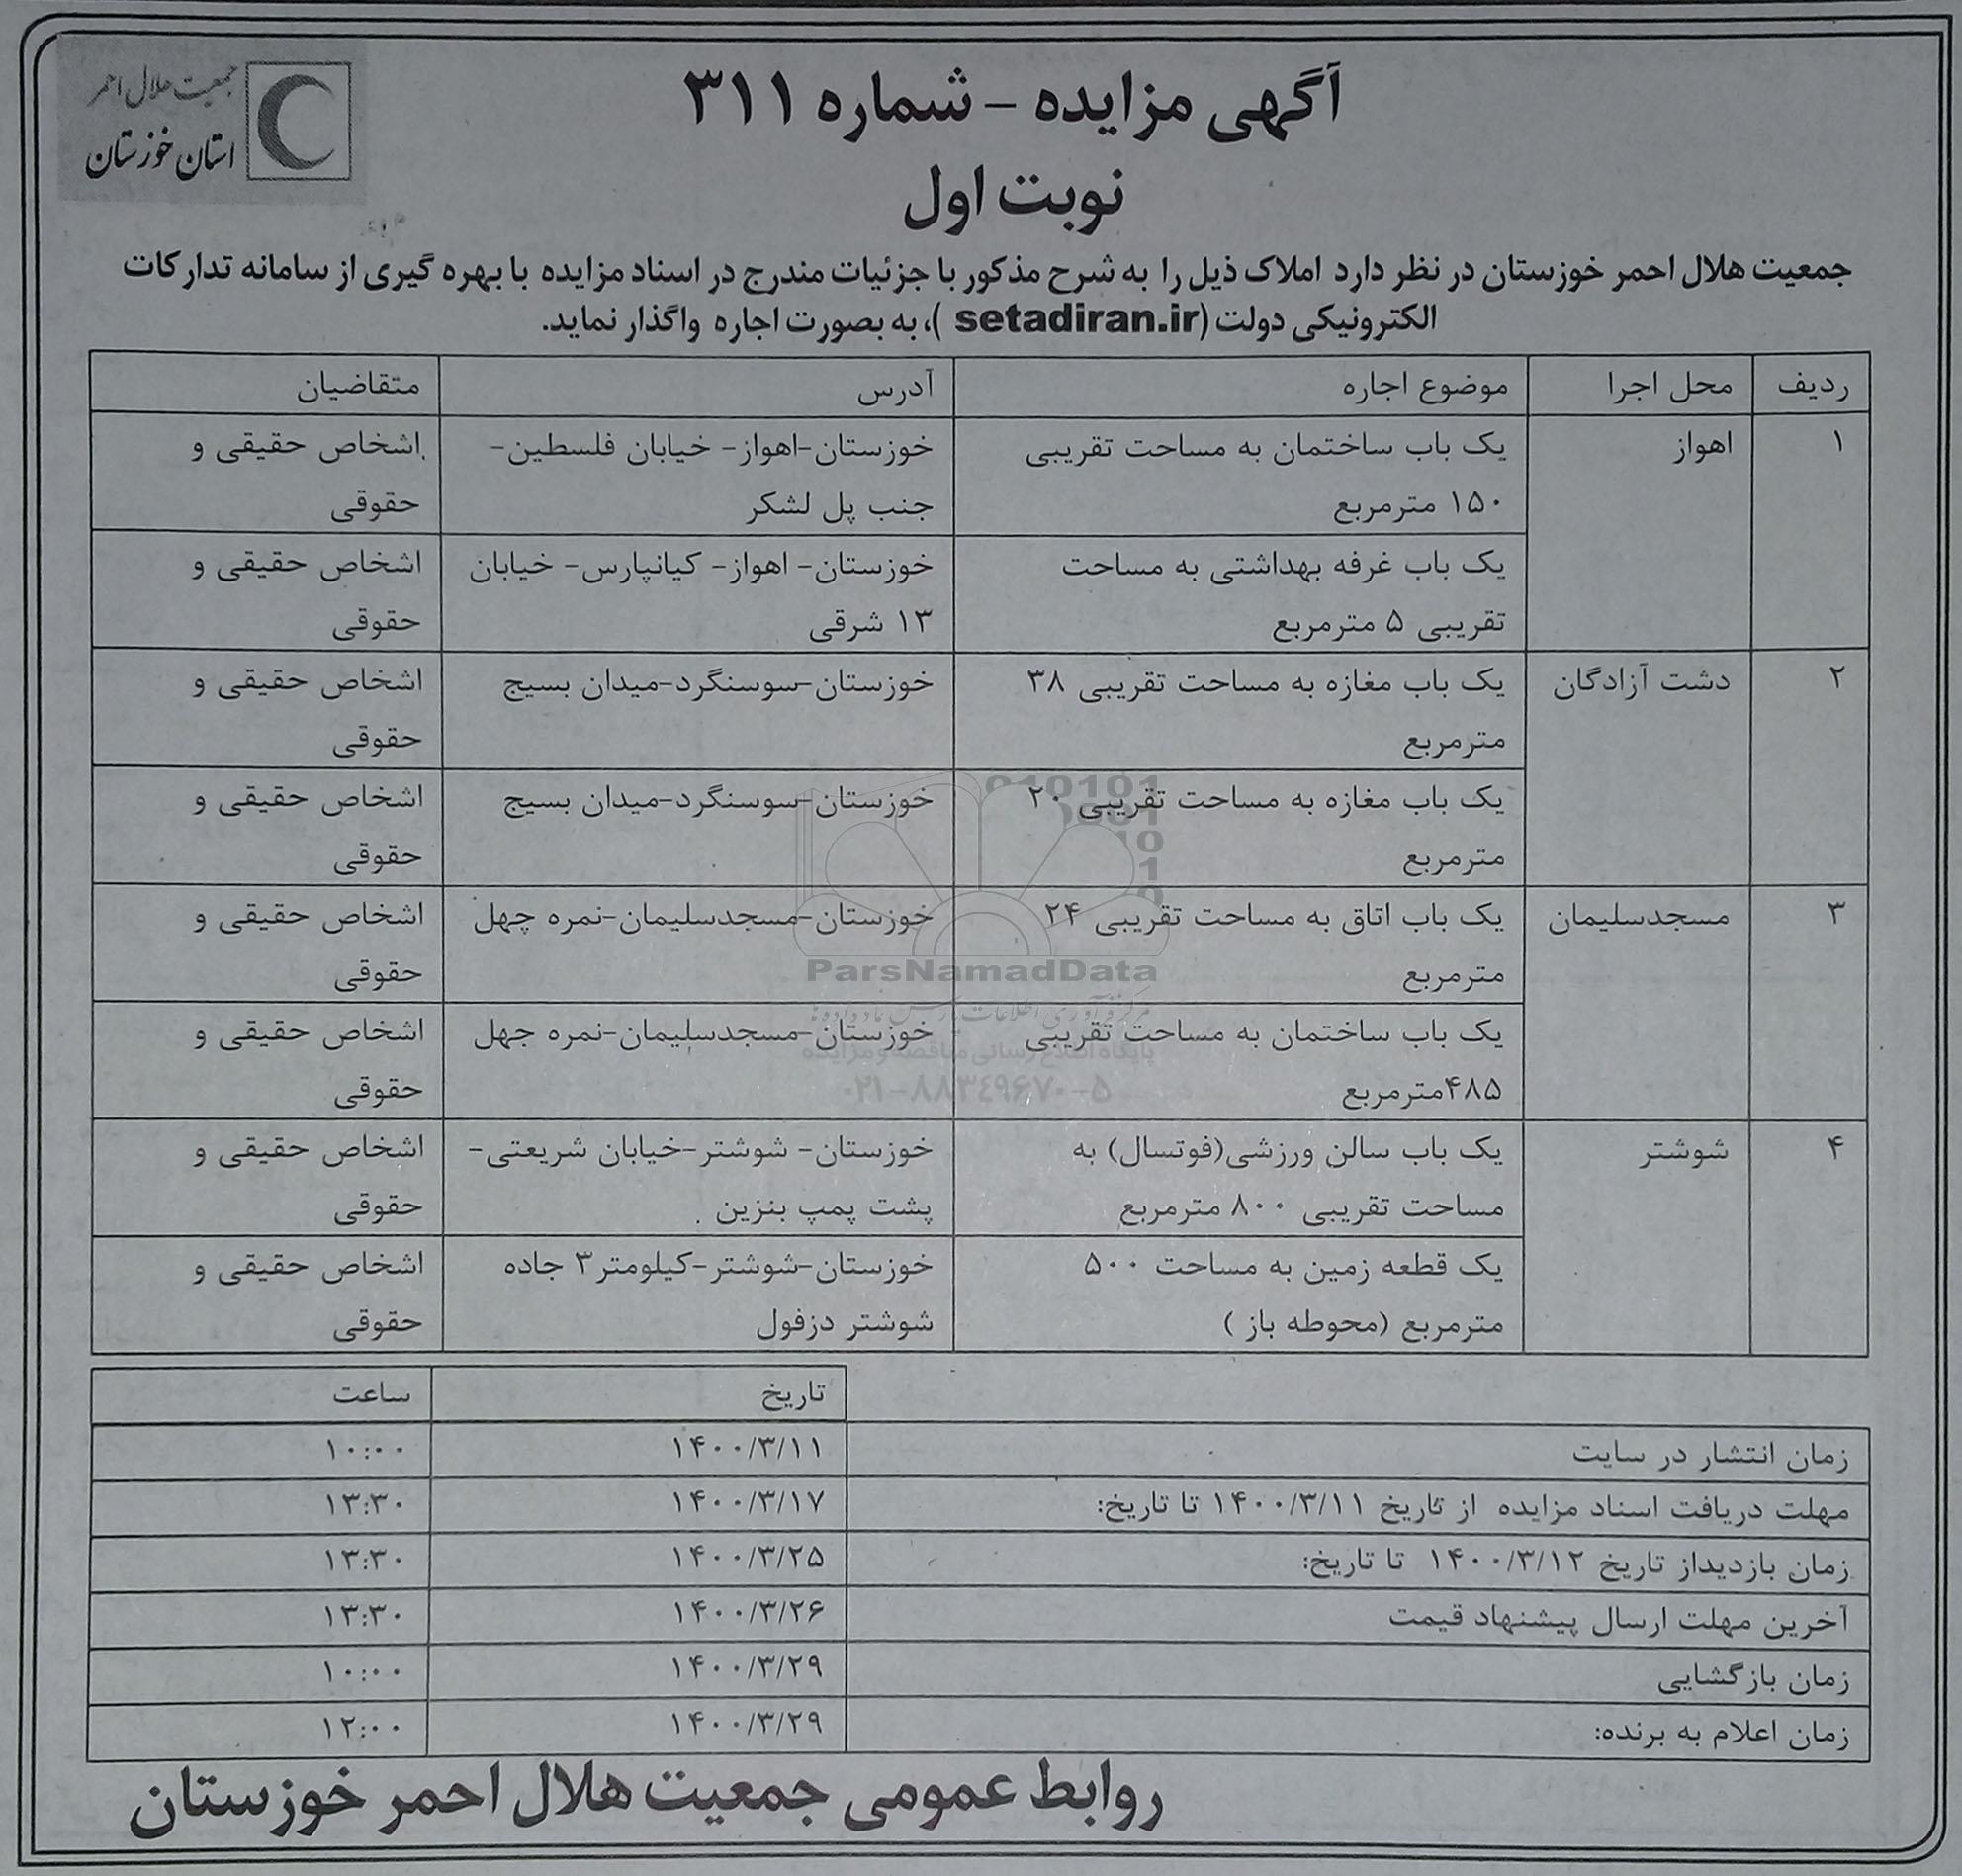 جمعیت هلال احمر
استان خوزستان
آگهی مزایده - شماره ۳۱۱
نوبت اول
جمعیت هلال احمر خوزستان در نظر دارد املاک ذیل را به شرح مذکور با جزئیات مندرج در اسناد مزایده با بهره گیری از سامانه تدارکات
الکترونیکی دولت (setadiran.ir )، به بصورت اجاره واگذار نماید.
ردیف محل اجرا موضوع اجاره آدرس متقاضیان
۱ اهواز یک باب ساختمان به مساحت تقریبی خوزستان-اهواز- خیابان فلسطین- اشخاص حقیقی و
۱۵۰ مترمربع جنب پل لشکر حقوقی
یک باب غرفه بهداشتی به مساحت خوزستان- اهواز- کیانپارس- خیابان اشخاص حقیقی و
تقریبی ۵ مترمربع ۱۳ شرقی حقوقی
۲ دشت آزادگان یک باب مغازه به مساحت تقریبی ۳۸ خوزستان-سوسنگرد-میدان بسیج اشخاص حقیقی و
مترمربع حقوقی
یک باب مغازه به مساحت تقریبی ۲۰ خوزستان-سوسنگرد-میدان بسیج اشخاص حقیقی و
مترمربع حقوقی
۳ مسجدسلیمان یک باب اتاق به مساحت تقریبی ۲۴ خوزستان-مسجدسلیمان-نمره چهل اشخاص حقیقی و
مترمربع حقوقی
ParsNamadData
مرکز فرآوری اطلاعات پارس نماد داده‌ها
یک باب ساختمان به مساحت تقریبی خوزستان-مسجدسلیمان-نمره جهل اشخاص حقیقی و
پایگاه اطلاع رسانی مناقصه و مزایده
۴۸۵مترمربع حقوقی
۰۲۱-۸۸۳۴۹۶۷۰-۵
۴ شوشتر یک باب سالن ورزشی(فوتسال) به خوزستان- شوشتر-خیابان شریعتی- اشخاص حقیقی و
مساحت تقریبی ۸۰۰ مترمربع پشت پمپ بنزین حقوقی
یک قطعه زمین به مساحت ۵۰۰ خوزستان-شوشتر-کیلومتر۳ جاده اشخاص حقیقی و
مترمربع (محوطه باز ) شوشتر دزفول حقوقی
تاریخ ساعت
زمان انتشار در سایت ۱۴۰۰/۳/۱۱ ۱۰:۰۰
مهلت دریافت اسناد مزایده از تاریخ ۱۴۰۰/۳/۱۱ تا تاریخ: ۱۴۰۰/۳/۱۷ ۱۳:۳۰
زمان بازدیداز تاریخ ۱۴۰۰/۳/۱۲ تا تاریخ: ۱۴۰۰/۳/۲۵ ۱۳:۳۰
آخرین مهلت ارسال پیشنهاد قیمت ۱۴۰۰/۳/۲۶ ۱۳:۳۰
زمان بازگشایی ۱۴۰۰/۳/۲۹ ۱۰:۰۰
زمان اعلام به برنده: ۱۴۰۰/۳/۲۹ ۱۲:۰۰
روابط عمومی جمعیت هلال احمر خوزستان